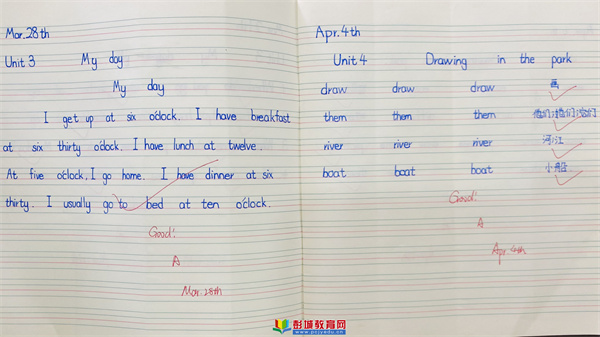 Mar. 28th
Unit 3 My day
My day
I get up at six o'clock. I have breakfast
at six thirty o'clock. I have lunch at twelve.
At five o'clock, I go home. I have dinner at six
thirty. I usually go to bed at ten o'clock.
Good!
A
Mar. 28th
Apr. 4th
Unit 4 Drawing in the park
draw draw draw 画
them them them 他们;她们;它们
river river river 河;江
boat boat boat 小船
Good!
A
Apr. 4th
彭城教育网
www.pcjyedu.cn